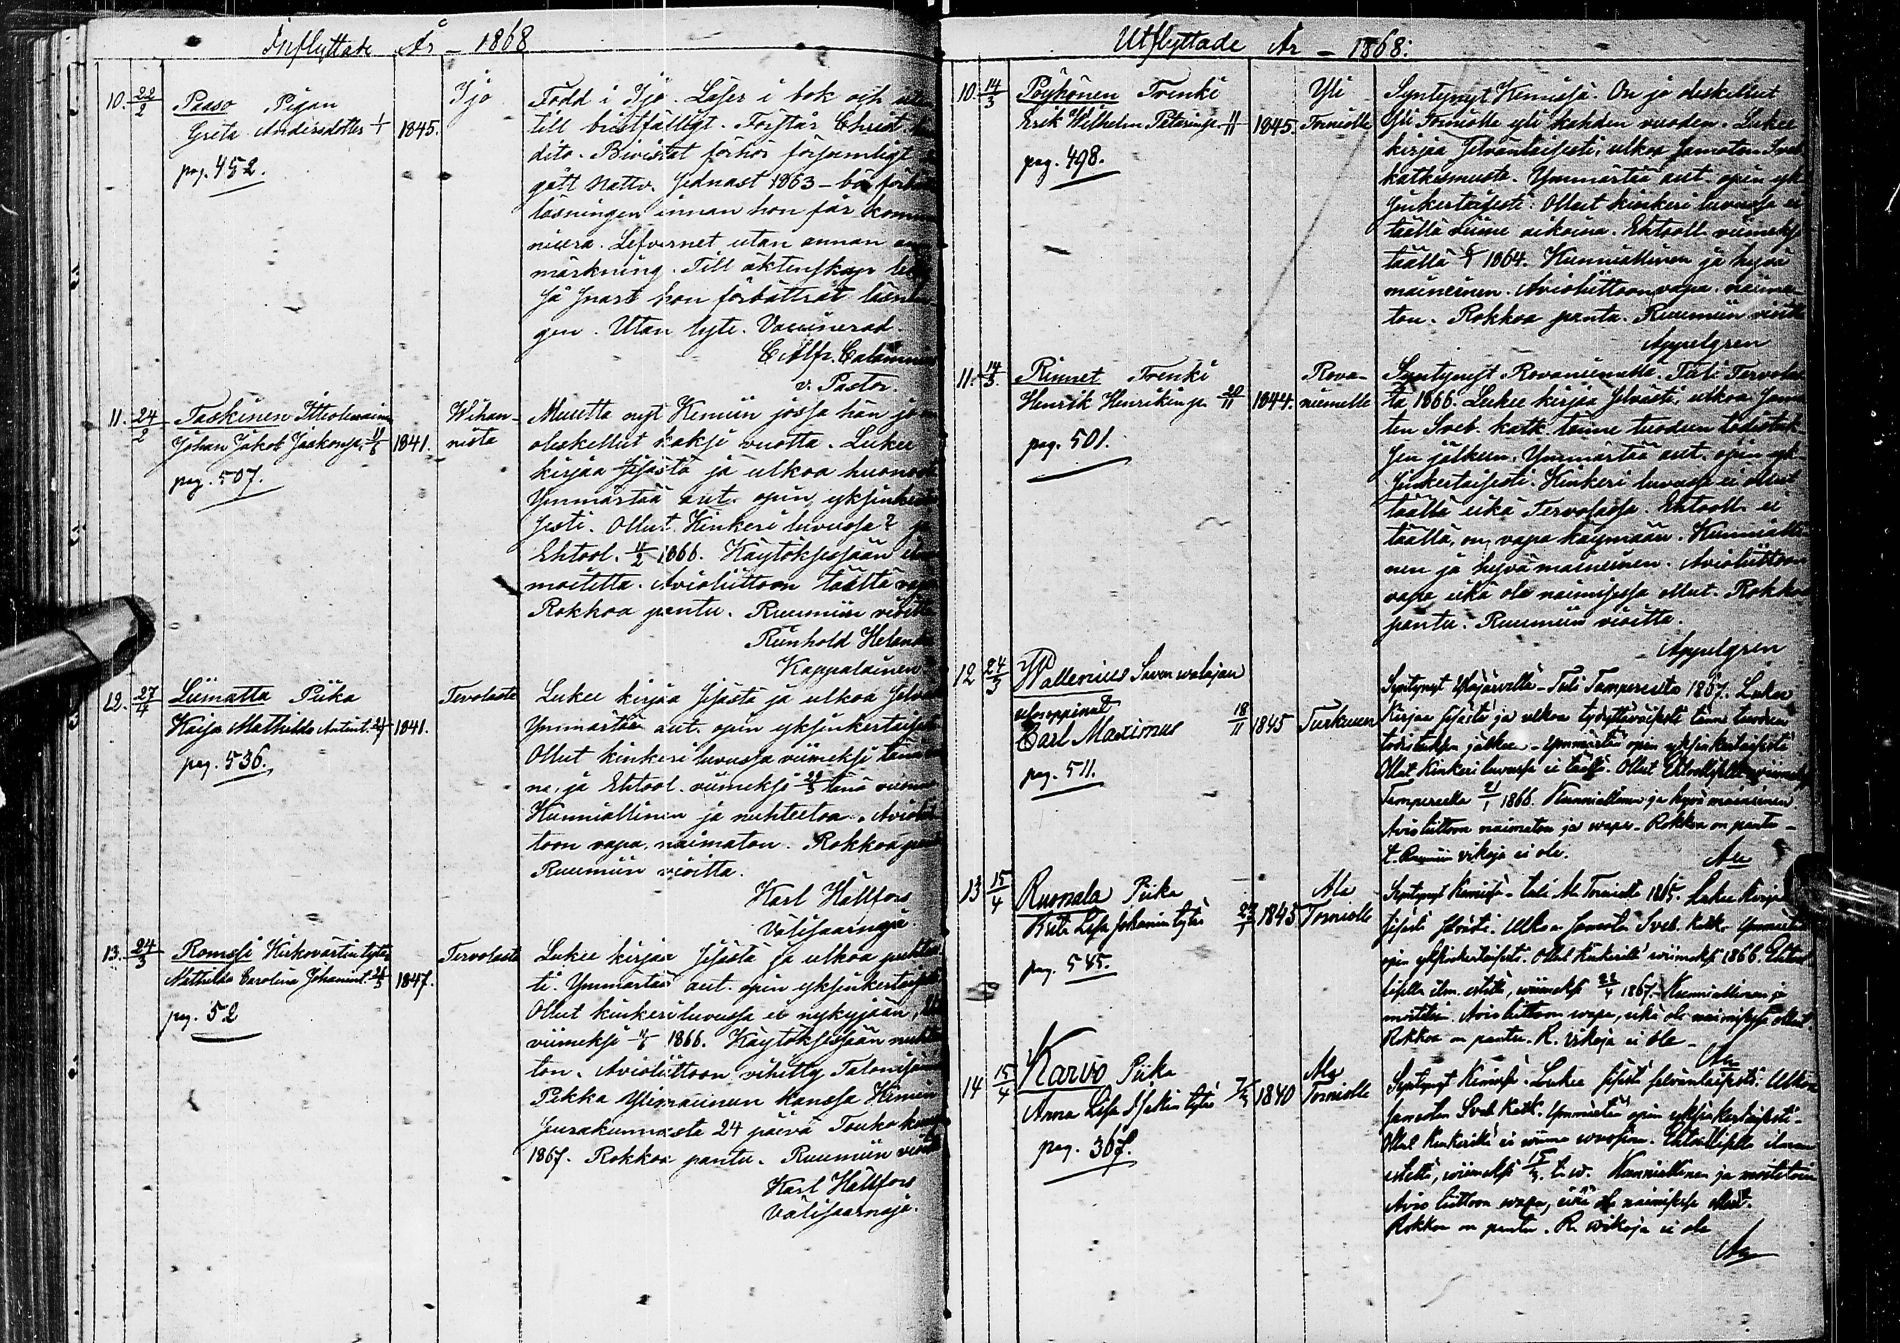 Inflyttade År - 1868
10. 22/2 Paaso Pigan
Greta Andersdotter 1/1 1845.
pag. 452.
Ijo
Född i Ijo. Läser i bok och
till bristfälligt. Förstår Christ
dito. Bivistat förhör församligt
gått Nattv. sednast 1863 - bör
läsningen innan hon får kommu
nicera. Lefvernet utan annan an
märkning. Till äktenskap ledig
så snart hon förbättrat läsnin
gen. Utan lyte. Vaccinerad.
C. Alfr. Calamnius
v. Pastor.
11. 24/2 Taskinen Itsellinen
Johan Jakob Jaakonp. 11/5 1841.
pag. 507.
Wihan-
nista
Muutta nyt Kemiin jossa hän jo on
oleskellut kaksi vuotta. Lukee
kirjaa sisästä ja ulkoa huonosti
Ymmärtää aut. opin yksinkertai
sesti. Ollut Kinkeri luvussa? ja
Ehtool. 11/2 1866. Käytöksessään
moitetta. Avioliittoon täältä vapa
Rokkoa pantu. Ruumiin vioitta
Reinhold Helander
Kappalainen
12. 27/4 Liimatta Piika
Kaisa Mathilda Antint. 1841.
pag. 536.
Tervolasta
Lukee kirjaa sisästä ja ulkoa selväs
Ymmärtää aut. opin yksinkertaisesti
Ollut kinkeri luvussa viimeksi tänä vuon
na, ja Ehtool. viimeksi 29/3 tänä vuonna
Kunniallinen ja nuhteetoa. Aviolii
toon vapa, naimaton. Rokkoa pantu
Ruumiin vioitta.
Karl Hällfors
Välisaarnaja.
13. 24/3 Romsi Kirkovärtin tytär
Mathilda Carolina Johanint. 1847.
pag. 52
Tervolasta
Lukee kirjaa sisästä ja ulkoa puhtaas
ti. Ymmärtää aut. opin yksinkertaisesti
Ollut kinkeri luvussa ei nykyjään,
viimeksi 1866. Käytöksessään nuhtee
ton. Avioliittoon vihitty Talonisännän
Pekka Ylimaunun kanssa Kemin
seurakunnasta 24 päivä Toukokuuta
1867. Rokkoa pantu. Ruumiin vioitta
Karl Hällfors
Välisaarnaja.
Utflyttade År - 1868:
10. 14/3 Pöykönen Trenki
Erik Wilhelm Peterinp. 1845.
pag. 498.
Yli
Tornioille
Syntynyt Kemissä. On jo oleskellut
Yli Torniolla yli kahden vuoden. Lukee
kirjaa selväntaisesti, ulkoa samoten Sveb
katkismusta. Ymmärtää aut. opin yk-
sinkertaisesti. Ollut kinkeri luvussa ei
täällä viime aikoina. Ehtooll. viimeksi
täällä 1864. Kunniallinen ja hyvä
maineinen. Avioliittoon vapa naima-
ton. Rokkoa pantu. Ruumiin vioitta
Appelgren
11. 14/3. Rinnet Trenki
Henrik Henrikinp. 20/11 1844.
pag. 501.
Rova-
niemelle
Syntynyt Rovaniemellä. Tuli Tervolas
ta 1866. Lukee kirjaa selvästi, ulkoa samo
ten Sveb. katk. tänne tuodun todistuk
sen jälkeen. Ymmärtää aut. opin yk
sinkertaisesti. Kinkeri luvussa ei ollut
täällä eikä Tervolassa. Ehtooll. ei
täällä, on vapa käymään. Kunnialli-
nen ja hyvä maineinen. Avioliittoon
vapa eikä ole naimisessa ollut. Rokkoa
pantu. Ruumiin vioitta.
Appelgren
12 24/3 Wallenius Savenvalajan
Carl Maximus 18/11 1845
pag. 511.
Turkuun
Syntynyt Kojärvellä - Tuli Tampereelta 1867. Lukee
Kirjaa sisästä ja ulkoa tyydyttäväisesti tänne tuodun
todistuksen jälkeen - Ymmärtää opin yksinkertaisesti
Ollut Kinkeri luvussa ei täällä. Ollut Ehtoollisella viimeksi
Tampereella 1866. Kunniallinen ja hyvä maineinen
Avioliittoon naimaton ja vapa - Rokkoa on pantu -
Ruumiin vikoja ei ole.
13 15/4 Ruonala Piika
Brita Lisa Johanin tytär 1845
pag. 545.
Ala
Tornioille
Syntynyt Kemissä - tuli Al. Torniolta 1865. Lukee Kirjaa
sisästä selvästi. Ulkoa samoten Sveb. Katk. Ymmärtää
opin yksinkertaisesti. Ollut Kinkerillä viimeksi 1866. Ehtool
lisella ilm. estettä, viimeksi 1867. Kunniallinen ja
moititoin. Avioliittoon wapa, eikä ole naimisessa ollut.
Rokkoa on pantu. R. vikoja ei ole -
14 15/4 Karvo Piika
Anna Lisa Isakin tytär 1840
pag. 367.
Ala
Tornioille
Syntynyt Kemissä. Lukee sisästä selväntaisesti. Ulkoa
samoten Sveb. Katk. Ymmärtää opin yksinkertaisesti -
Ollut Kinkerillä ei wiime wuosina. Ehtoollisella ilman
estettä, wiimeksi t. w. Kunniallinen ja moititoin
Avioliittoon wapa, eikä ole naimisessa ollut.
Rokkoa on pantu. R. wikoja ei ole